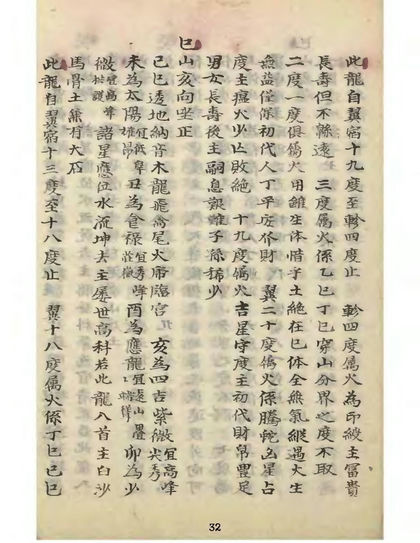 巳
此龍自翼宿十九度至軫四度止　軫四度属火為印綬主冨貴
長壽但不綿遠　三度属火係乙巳丁巳穿山分界之度不取
二度一度俱属火用雖生体惜乎土絶在巳体全無氣縱遇火生
無益僅保初代人丁平安不財　翼二十度属火係騰蛇凶星占
度主瘟火少亡敗絶　十九度属火吉星守度主初代財帛豐足
男女長壽後主嗣息艱難子孫稀少
山亥向坐正
己巳透地納音木龍飛奮尾火帝臨宫　亥為四吉紫微宜高峰尖秀
未為太陽宜低阜　丑為食祿宜秀峰　酉為應龍宜遠山疊　卯為少
微宜高峯　諸星應位水流坤去主屡世髙科若此龍入首主白沙
馬骨土無有大石
此龍自翼宿十三度至十八度止　翼十八度属火係丁巳己巳
32